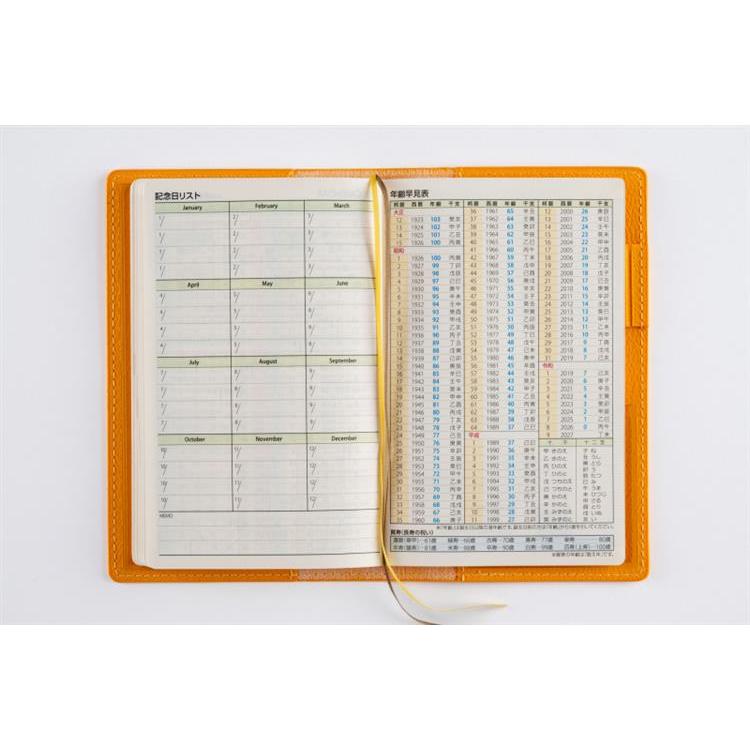 記念日リスト
January February March
1/ 2/ 3/
1/ 2/ 3/
1/ 2/ 3/
1/ 2/ 3/
April May June
4/ 5/ 6/
4/ 5/ 6/
4/ 5/ 6/
4/ 5/ 6/
July August September
7/ 8/ 9/
7/ 8/ 9/
7/ 8/ 9/
7/ 8/ 9/
October November December
10/ 11/ 12/
10/ 11/ 12/
10/ 11/ 12/
10/ 11/ 12/
MEMO
年齢早見表
邦暦 西暦 年齢 干支
大正
12 1923 103 癸亥
13 1924 102 甲子
14 1925 101 乙丑
15 1926 100 丙寅
昭和
1 1926 100 丙寅
2 1927 99 丁卯
3 1928 98 戊辰
4 1929 97 己巳
5 1930 96 庚午
6 1931 95 辛未
7 1932 94 壬申
8 1933 93 癸酉
9 1934 92 甲戌
10 1935 91 乙亥
11 1936 90 丙子
12 1937 89 丁丑
13 1938 88 戊寅
14 1939 87 己卯
15 1940 86 庚辰
16 1941 85 辛巳
17 1942 84 壬午
18 1943 83 癸未
19 1944 82 甲申
20 1945 81 乙酉
21 1946 80 丙戌
22 1947 79 丁亥
23 1948 78 戊子
24 1949 77 己丑
25 1950 76 庚寅
26 1951 75 辛卯
27 1952 74 壬辰
28 1953 73 癸巳
29 1954 72 甲午
30 1955 71 乙未
31 1956 70 丙申
32 1957 69 丁酉
33 1958 68 戊戌
34 1959 67 己亥
35 1960 66 庚子
邦暦 西暦 年齢 干支
36 1961 65 辛丑
37 1962 64 壬寅
38 1963 63 癸卯
39 1964 62 甲辰
40 1965 61 乙巳
41 1966 60 丙午
42 1967 59 丁未
43 1968 58 戊申
44 1969 57 己酉
45 1970 56 庚戌
46 1971 55 辛亥
47 1972 54 壬子
48 1973 53 癸丑
49 1974 52 甲寅
50 1975 51 乙卯
51 1976 50 丙辰
52 1977 49 丁巳
53 1978 48 戊午
54 1979 47 己未
55 1980 46 庚申
56 1981 45 辛酉
57 1982 44 壬戌
58 1983 43 癸亥
59 1984 42 甲子
60 1985 41 乙丑
61 1986 40 丙寅
62 1987 39 丁卯
63 1988 38 戊辰
64 1989 37 己巳
平成
1 1989 37 己巳
2 1990 36 庚午
3 1991 35 辛未
4 1992 34 壬申
5 1993 33 癸酉
6 1994 32 甲戌
7 1995 31 乙亥
8 1996 30 丙子
9 1997 29 丁丑
10 1998 28 戊寅
11 1999 27 己卯
邦暦 西暦 年齢 干支
12 2000 26 庚辰
13 2001 25 辛巳
14 2002 24 壬午
15 2003 23 癸未
16 2004 22 甲申
17 2005 21 乙酉
18 2006 20 丙戌
19 2007 19 丁亥
20 2008 18 戊子
21 2009 17 己丑
22 2010 16 庚寅
23 2011 15 辛卯
24 2012 14 壬辰
25 2013 13 癸巳
26 2014 12 甲午
27 2015 11 乙未
28 2016 10 丙申
29 2017 9 丁酉
30 2018 8 戊戌
31 2019 7 己亥
令和
1 2019 7 己亥
2 2020 6 庚子
3 2021 5 辛丑
4 2022 4 壬寅
5 2023 3 癸卯
6 2024 2 甲辰
7 2025 1 乙巳
8 2026 0 丙午
9 2027 丁未
十干 十二支
甲 きのえ 子 ね
乙 きのと 丑 うし
丙 ひのえ 寅 とら
丁 ひのと 卯 う
戊 つちのえ 辰 たつ
己 つちのと 巳 み
庚 かのえ 午 うま
辛 かのと 未 ひつじ
壬 みずのえ 申 さる
癸 みずのと 酉 とり
戌 いぬ
亥 い
賀寿(長寿の祝い)
還暦(華甲)―61歳 緑寿―66歳 古希―70歳 喜寿―77歳 傘寿―80歳
半寿(盤寿)―81歳 米寿―88歳 卒寿―90歳 白寿―99歳 百寿(上寿)―100歳